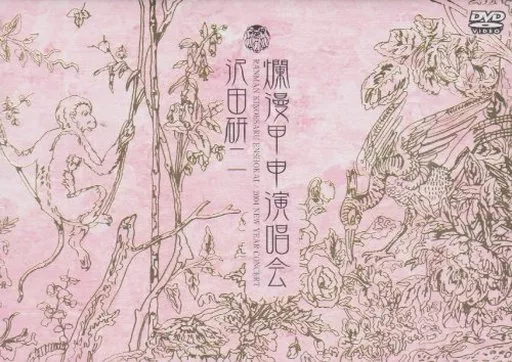 DVD
VIDEO
爛漫甲申演唱会
RANMAN KINOESARU ENSHOKAI / 2004 NEW YEAR CONCERT
沢田研二